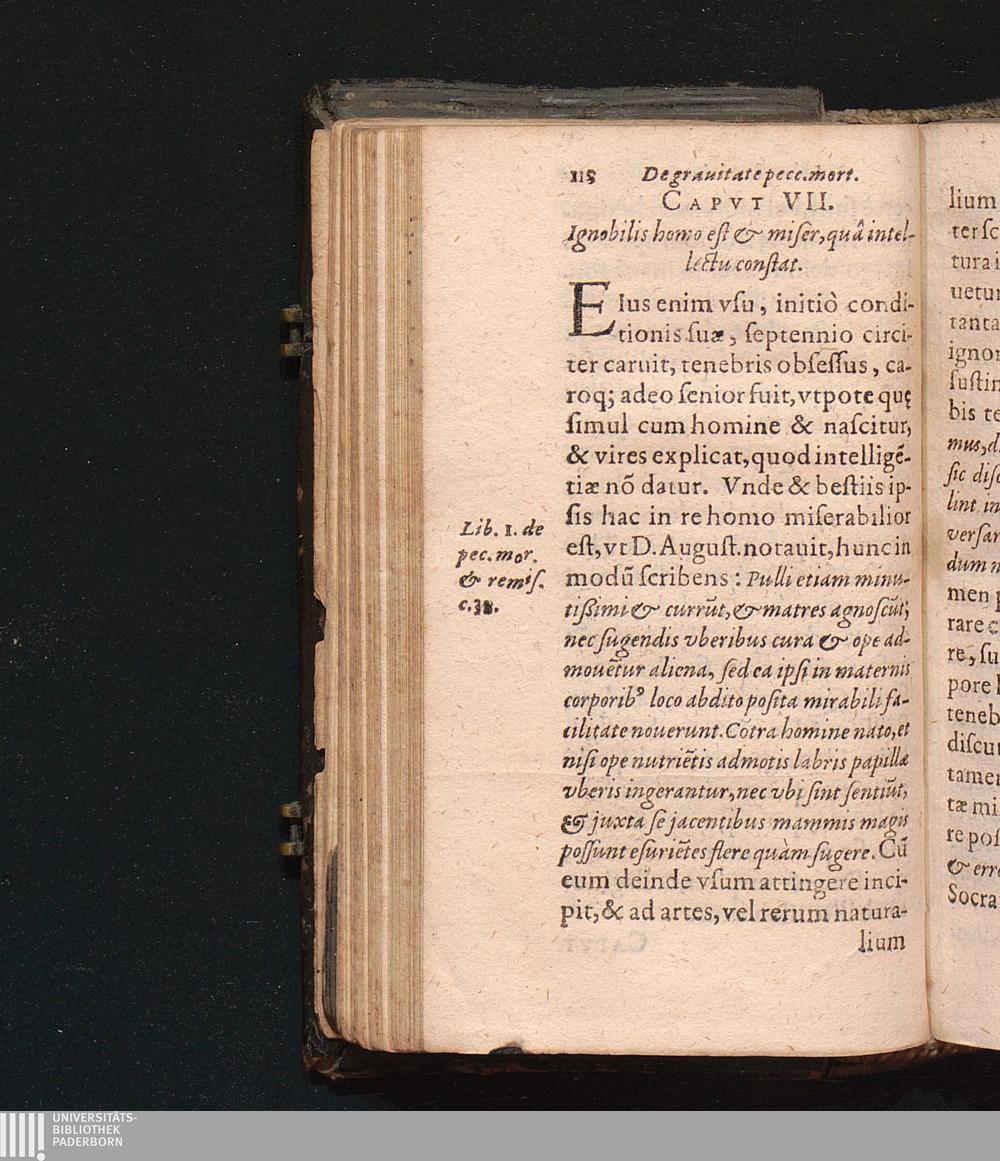 115 De grauitate pecc. mort.
CAPVT VII.
Ignobilis homo est & miser, quâ intel-
lectu constat.
EIus enim vsu, initiò condi-
tionis suæ, septennio circi-
ter caruit, tenebris obsessus, ca-
roq; adeo senior fuit, vtpote quę
simul cum homine & nascitur,
& vires explicat, quod intelligẽ-
tiæ nõ datur. Vnde & bestiis ip-
sis hac in re homo miserabilior
est, vt D. August. notauit, hunc in
modũ scribens: Pulli etiam minu-
tißimi & currũt, & matres agnoscũt;
nec sugendis vberibus cura & ope ad-
mouẽtur aliena, sed ea ipsi in maternis
corporibꝰ loco abdito posita mirabili fa-
cilitate nouerunt. Cõtra homine nato, et
nisi ope nutriẽtis admotis labris papillæ
vberis ingerantur, nec vbi sint sentiũt,
& juxta se jacentibus mammis magis
possunt esuriẽtes flere quàm sugere. Cũ
eum deinde vsum attingere inci-
pit, & ad artes, vel rerum natura-
lium
Lib. 1. de
pec. mor.
& remis.
c. 38.
lium
ter sc
tura i
uetur
tanta
ignor
sustin
bis te
mus, d
sic disc
lint in
versar
dum n
men p
rare c
re, su
pore
teneb
discu
tamen
tæ mi
re pos
& erro
Socra
UNIVERSITÄTS-
BIBLIOTHEK
PADERBORN